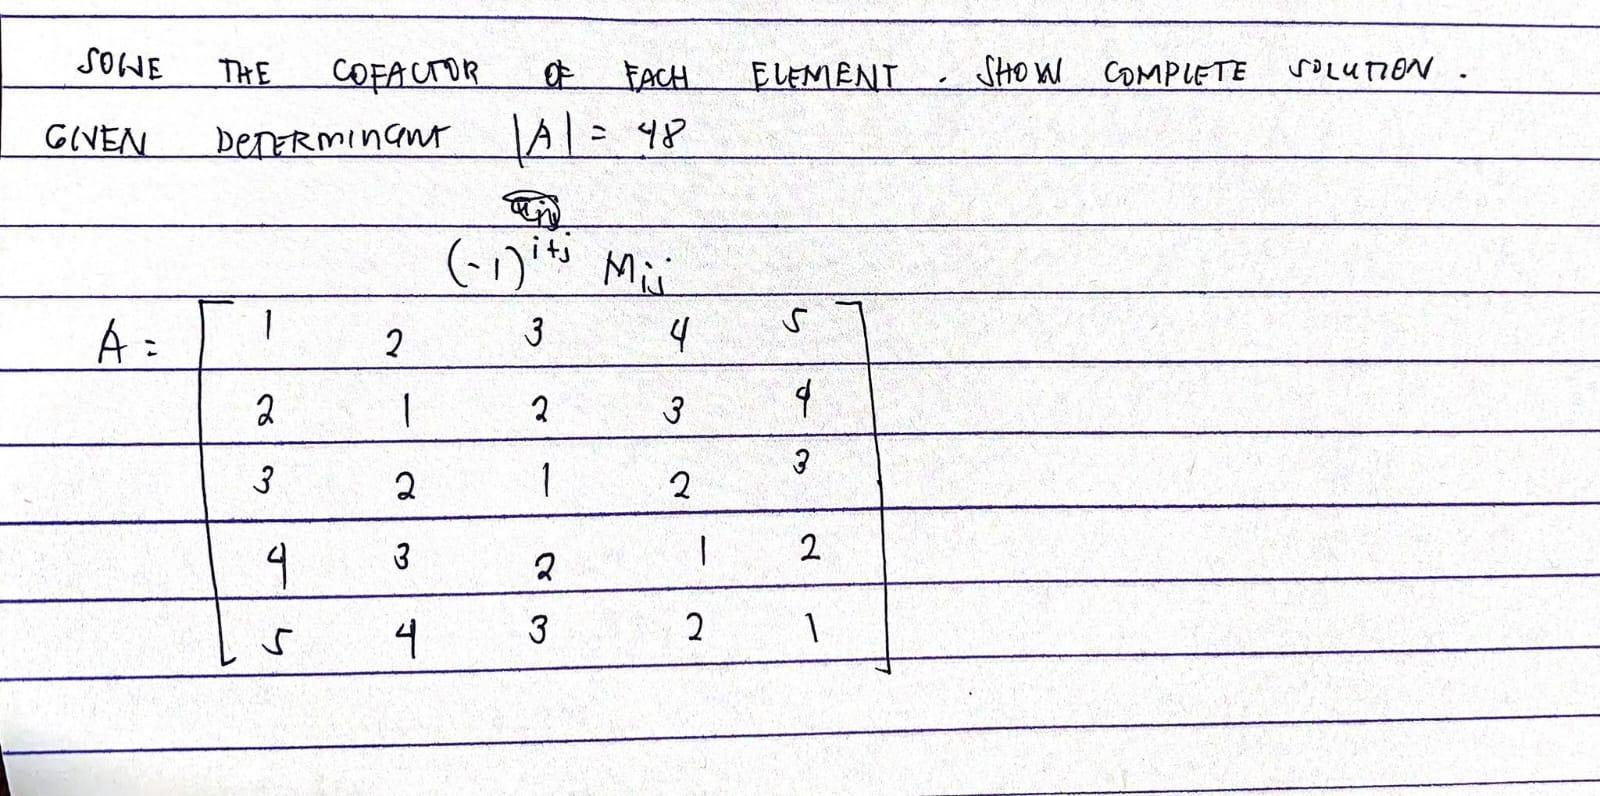 SOLVE THE COFACTOR OF EACH ELEMENT . SHOW COMPLETE SOLUTION .
GIVEN DETERMINANT |A| = 48
(-1)^{i+j} M_{ij}
A = [ 1 2 3 4 5
2 1 2 3 4
3 2 1 2 3
4 3 2 1 2
5 4 3 2 1 ]